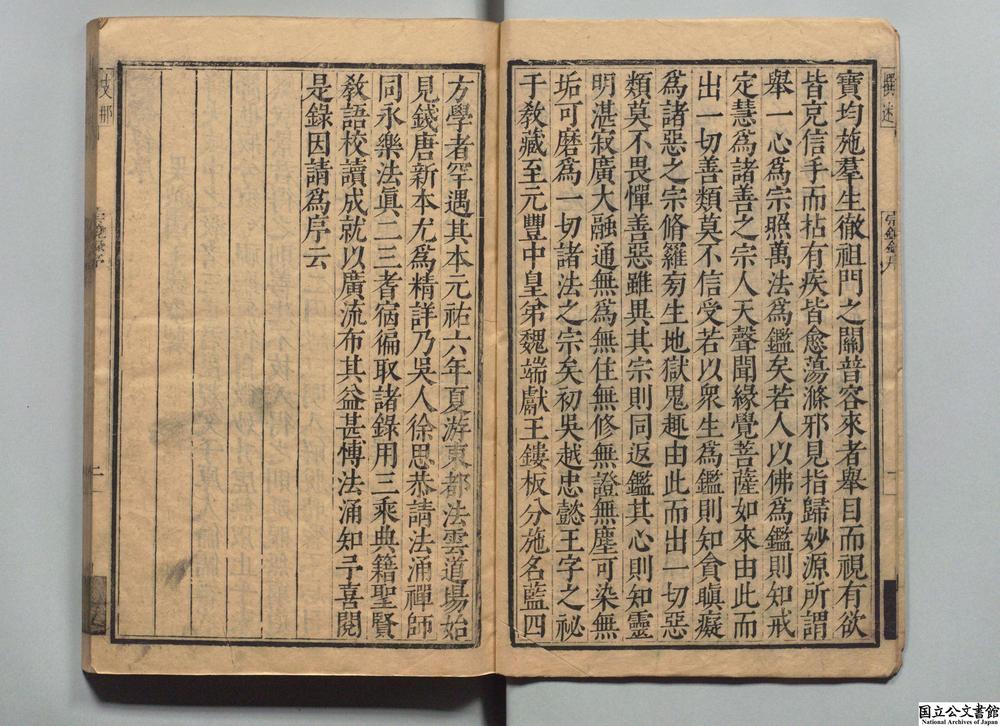 寶均施羣生徹祖門之關普容來者舉目而視有欲
皆克信手而拈有疾皆愈蕩滌邪見指歸妙源所謂
舉一心爲宗照萬法爲鑑矣若人以佛爲鑑則知戒
定慧爲諸善之宗人天聲聞緣覺菩薩如來由此而
出一切善類莫不信受若以衆生爲鑑則知貪瞋癡
爲諸惡之宗脩羅旁生地獄鬼趣由此而出一切惡
類莫不畏憚善惡雖異其宗則同返鑑其心則知靈
明湛寂廣大融通無爲無住無修無證無塵可染無
垢可磨爲一切諸法之宗矣初吳越忠懿王字之祕
于敎藏至元豐中皇弟魏端獻王鏤板分施名藍四
方學者罕遇其本元祐六年夏游東都法雲道場始
見錢唐新本尤爲精詳乃吳人徐思恭請法涌禪師
同永樂法眞二三耆宿徧取諸錄用三乘典籍聖賢
敎語校讀成就以廣流布其益甚博法涌知予喜閱
是錄因請爲序云
撰述
宗鏡錄序
支那
宗鏡錄序
国立公文書館
National Archives of Japan